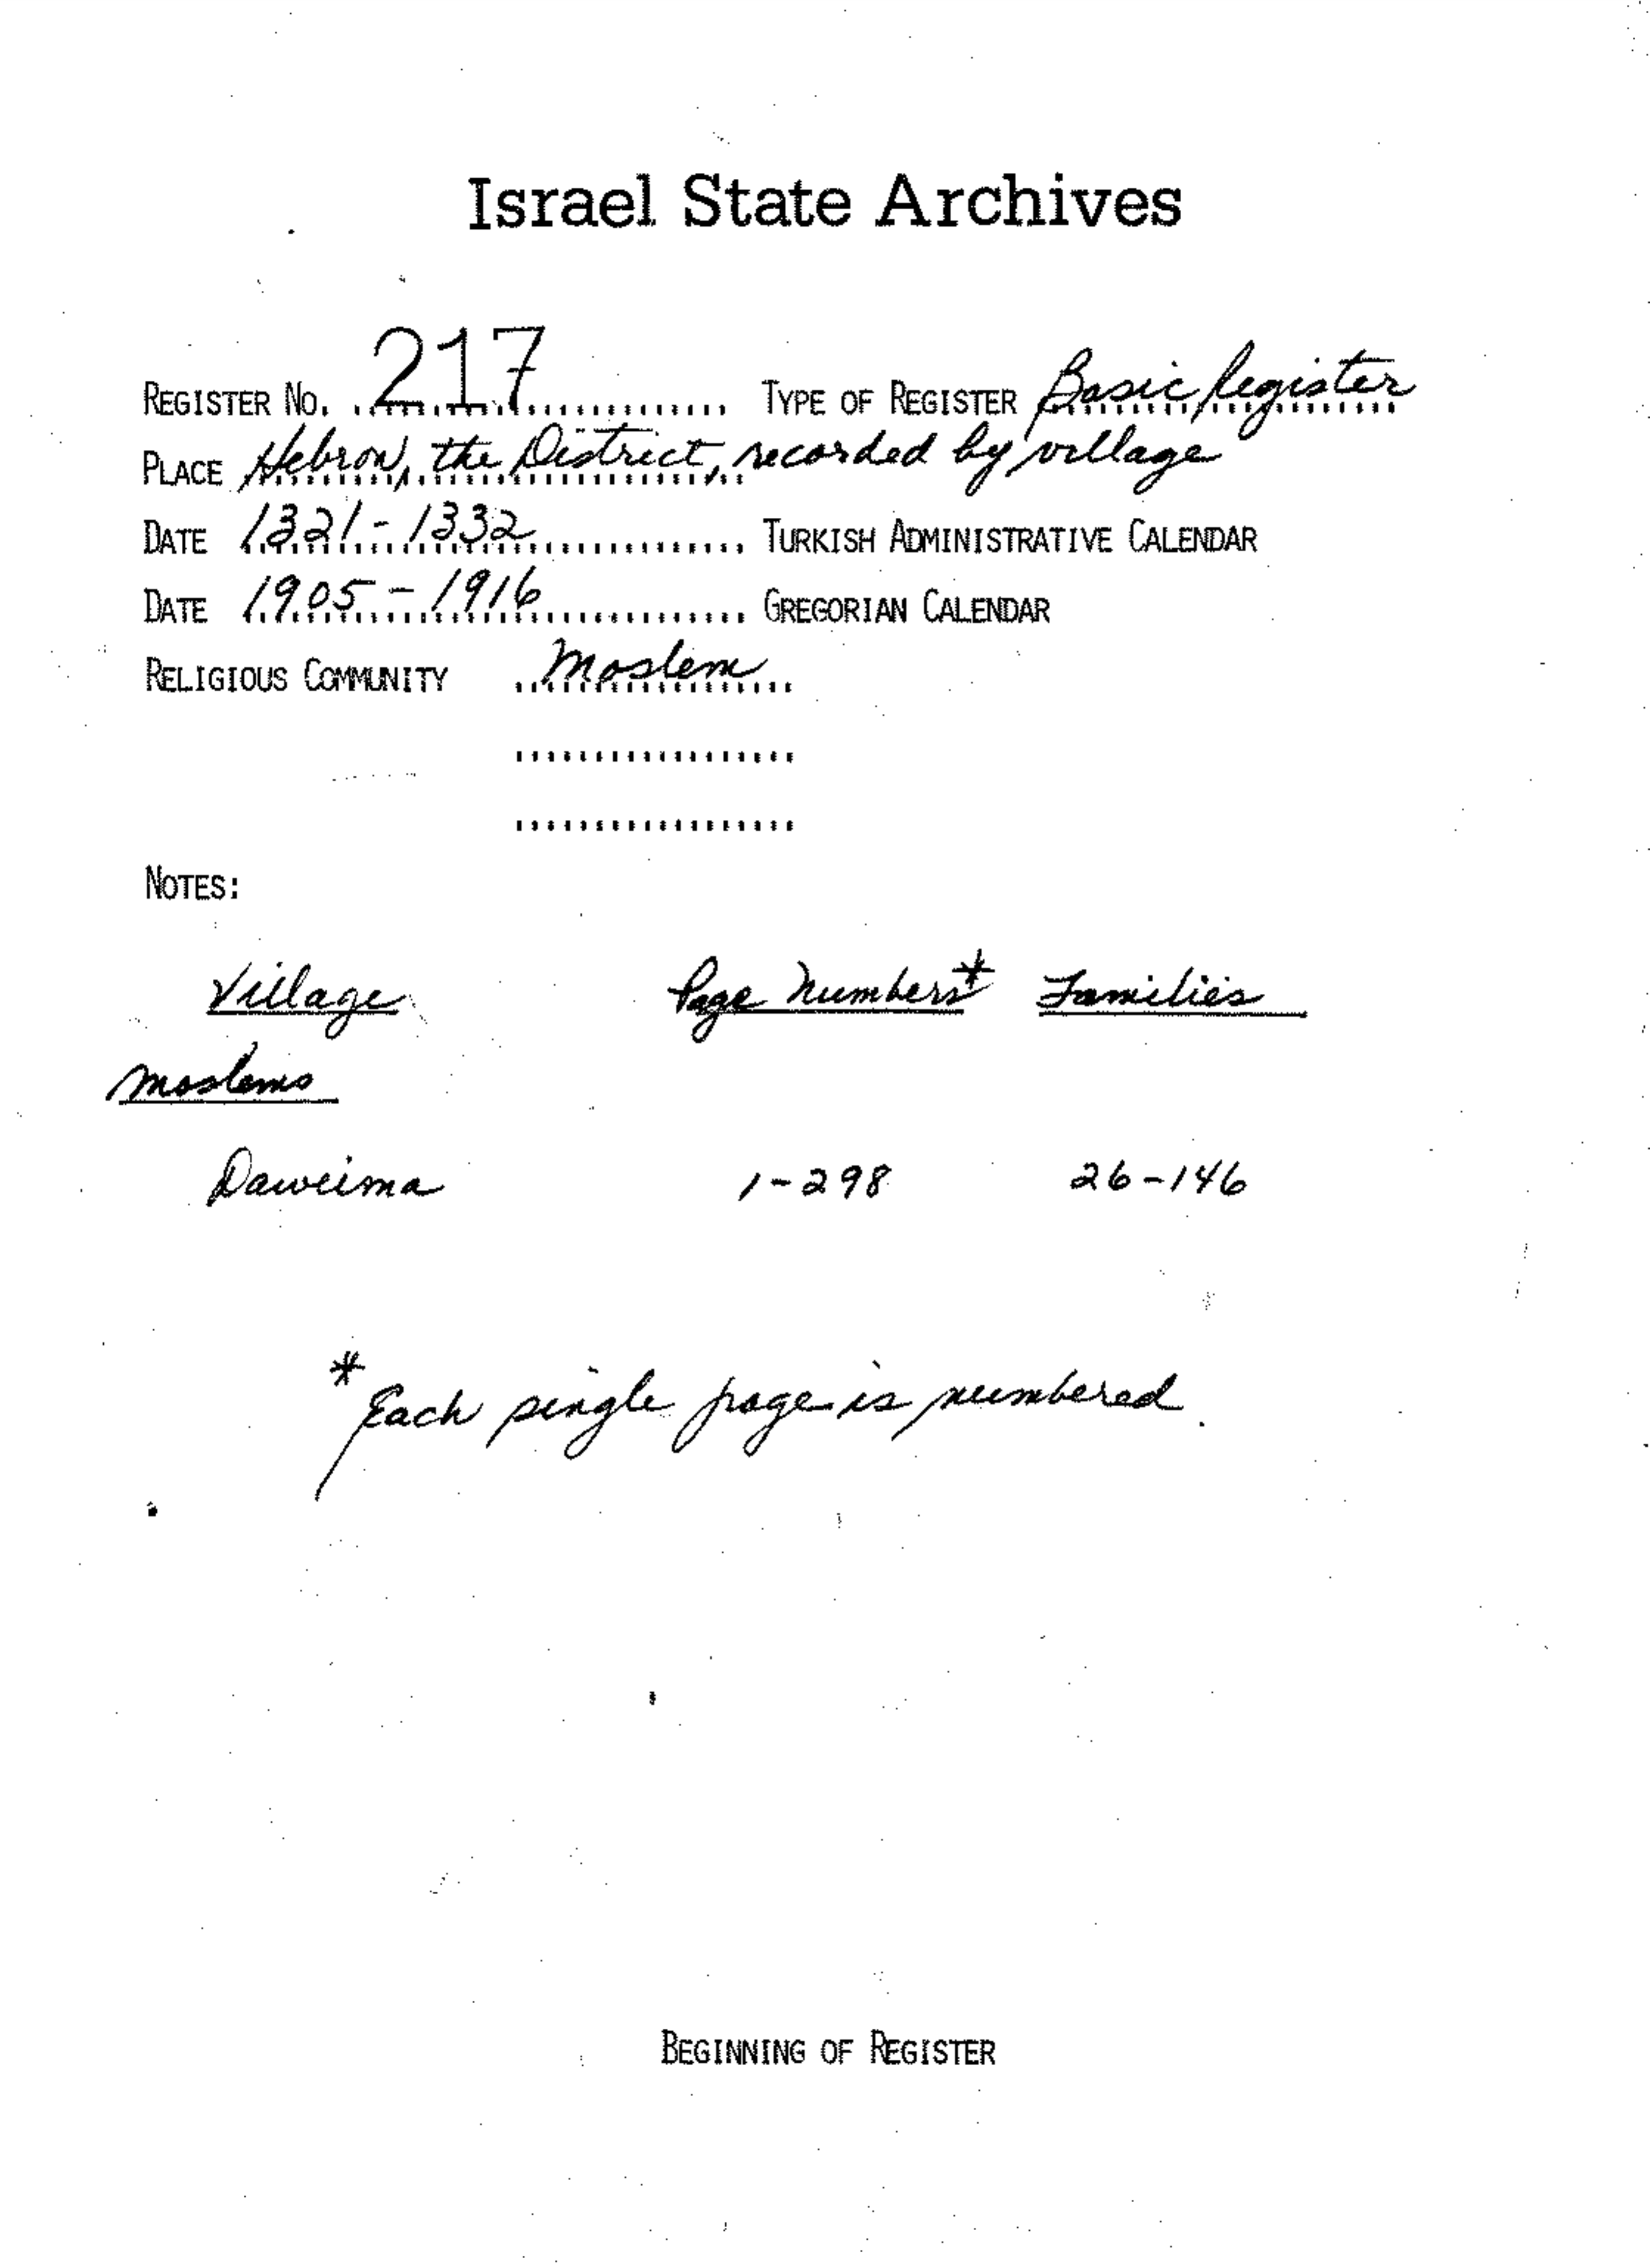 Israel State Archives
REGISTER NO. 217 TYPE OF REGISTER Basic Register
PLACE Hebron, the District, recorded by village
DATE 1321-1332 TURKISH ADMINISTRATIVE CALENDAR
DATE 1905-1916 GREGORIAN CALENDAR
RELIGIOUS COMMUNITY Moslem
NOTES:
Village Page Numbers* Families
Moslems
Daweima 1-298 26-146
* Each single page is numbered.
BEGINNING OF REGISTER